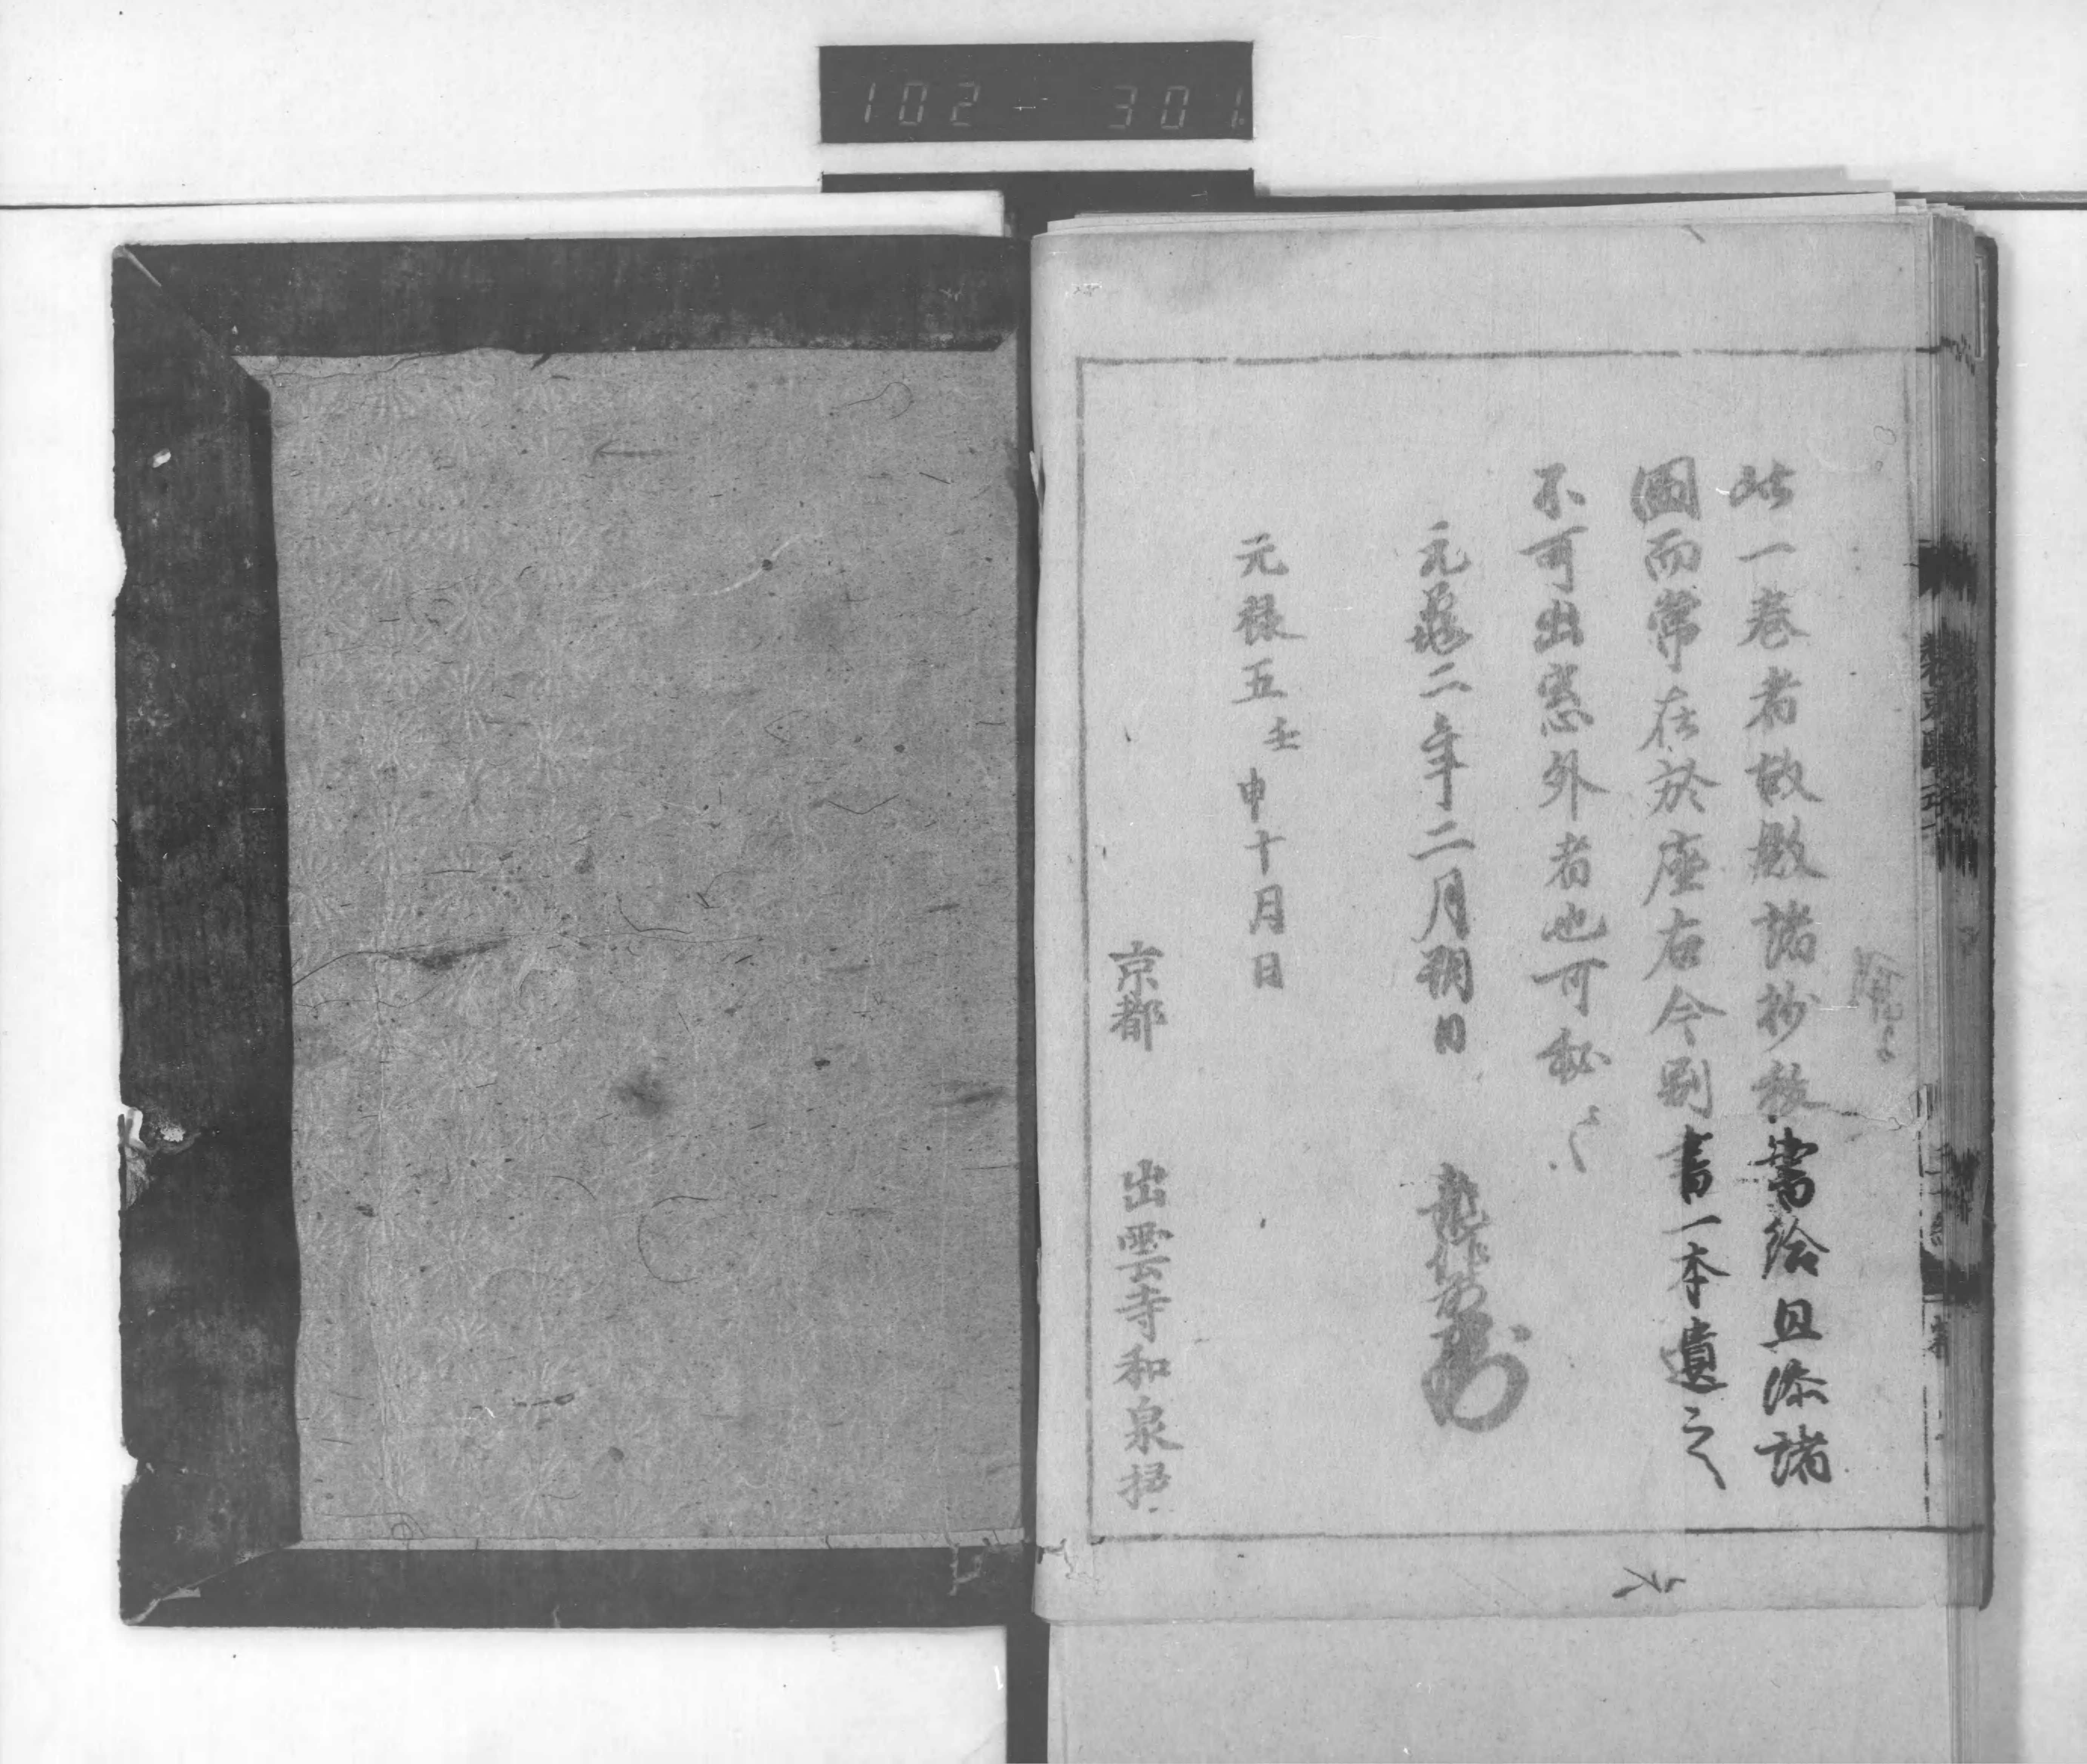 102 - 301
此一卷者故殿諸抄釵嘗給且添諸
圖而常在於座右今別書一本遺之
不可出窓外者也可秘〻
元亀二年二月朔日
元祿五壬申十月日
京都 出雲寺和泉掾